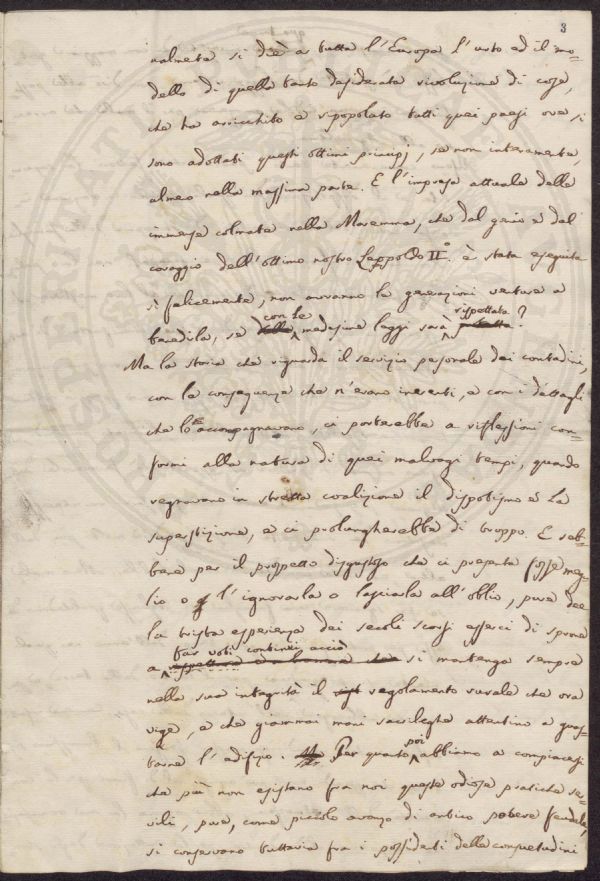 3
nalmente si diè a tutta l'Europa l'urto ed il mo=
dello di quella tanto desiderata rivoluzione di cose,
che ha arricchito e ripopolato tutti quei paesi ove si
sono adottati questi ottimi principj, se non interamente,
almeno nella massima parte. E l'impresa attuale delle
immense colmate nella Maremma, che dal genio e dal
coraggio dell'ottimo nostro Leopoldo II.º è stata eseguita
sì felicemente, non avranno le generazioni venture a
con Le rispettata
benedirla, se medesime leggi sarà ?
Ma la storia che riguarda il servizio personale dei contadini,
con le conseguenze che n'erano inerenti, e con i dettagli
che lo accompagnavano, ci porterebbe a riflessioni con=
formi alla natura di quei malvagi tempi, quando
regnavano in stretta coalizione il dispotismo e La
superstizione, e ci prolungherebbe di troppo. E seb=
bene per il prospetto disgustoso che ci presenta fosse meg=
lio o l'ignorarla o lasciarla all'oblio, pure dee
la trista esperienza dei secoli scorsi esserci di sprone
far voti continui acciò
a rispettare e a bramare che si mantenga sempre
nella sua integrità il regolamento rurale che ora
vige, e che giammai mani sacrileghe attentino a guas=
poi
tarne l'edifizio. Per quanto abbiamo a compiacersi
che più non esistano fra noi queste odiose pratiche se=
vili, pure, come piccolo avanzo di antico potere feudale,
si conservano tuttavia fra i possidenti delle consuetudini